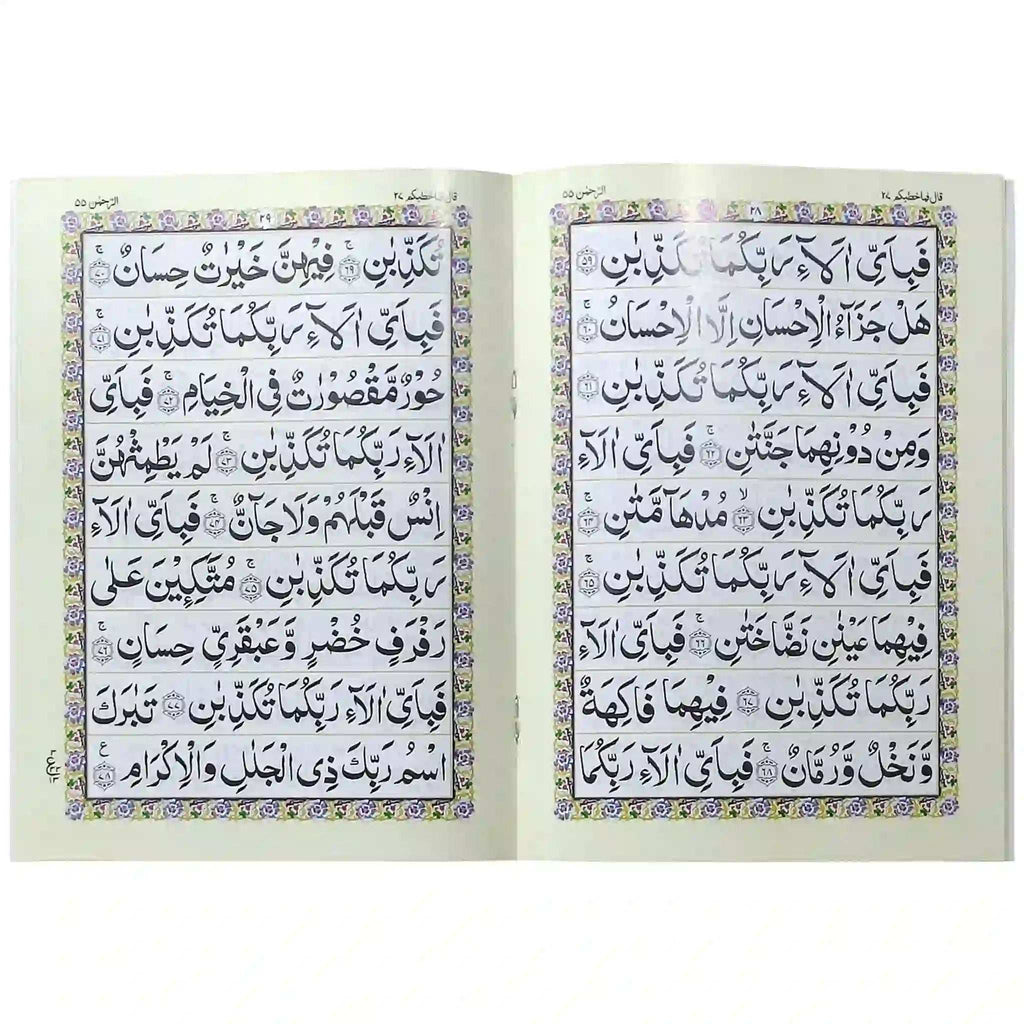 قال فما خطبكم ٢٧
الرحمٰن ٥٥
٢٨
فَبِاَىِّ اٰلَآءِ رَبِّكُمَا تُكَذِّبٰنِ ۝٥٩ ج
هَلْ جَزَآءُ الْاِحْسَانِ اِلَّا الْاِحْسَانُ ۝٦٠ ج
فَبِاَىِّ اٰلَآءِ رَبِّكُمَا تُكَذِّبٰنِ ۝٦١
وَمِنْ دُوْنِهِمَا جَنَّتٰنِ ۝٦٢ ج فَبِاَىِّ اٰلَآءِ
رَبِّكُمَا تُكَذِّبٰنِ ۝٦٣ لا مُدْهَآمَّتٰنِ ۝٦٤ ج
فَبِاَىِّ اٰلَآءِ رَبِّكُمَا تُكَذِّبٰنِ ۝٦٥ ج
فِيْهِمَا عَيْنٰنِ نَضَّاخَتٰنِ ۝٦٦ ج فَبِاَىِّ اٰلَآءِ
رَبِّكُمَا تُكَذِّبٰنِ ۝٦٧ فِيْهِمَا فَاكِهَةٌ
وَّنَخْلٌ وَّرُمَّانٌ ۝٦٨ ج فَبِاَىِّ اٰلَآءِ رَبِّكُمَا
قال فما خطبكم ٢٧
الرحمٰن ٥٥
٢٩
تُكَذِّبٰنِ ۝٦٩ ج فِيْهِنَّ خَيْرٰتٌ حِسَانٌ ۝٧٠ ج
فَبِاَىِّ اٰلَآءِ رَبِّكُمَا تُكَذِّبٰنِ ۝٧١ ج
حُوْرٌ مَّقْصُوْرٰتٌ فِى الْخِيَامِ ۝٧٢ ج فَبِاَىِّ
اٰلَآءِ رَبِّكُمَا تُكَذِّبٰنِ ۝٧٣ ج لَمْ يَطْمِثْهُنَّ
اِنْسٌ قَبْلَهُمْ وَلَا جَآنٌّ ۝٧٤ ج فَبِاَىِّ اٰلَآءِ
رَبِّكُمَا تُكَذِّبٰنِ ۝٧٥ ج مُتَّكِـِٕيْنَ عَلٰى
رَفْرَفٍ خُضْرٍ وَّعَبْقَرِىٍّ حِسَانٍ ۝٧٦ ج
فَبِاَىِّ اٰلَآءِ رَبِّكُمَا تُكَذِّبٰنِ ۝٧٧ تَبٰرَكَ
اسْمُ رَبِّكَ ذِى الْجَلٰلِ وَالْاِكْرَامِ ۝٧٨ ع